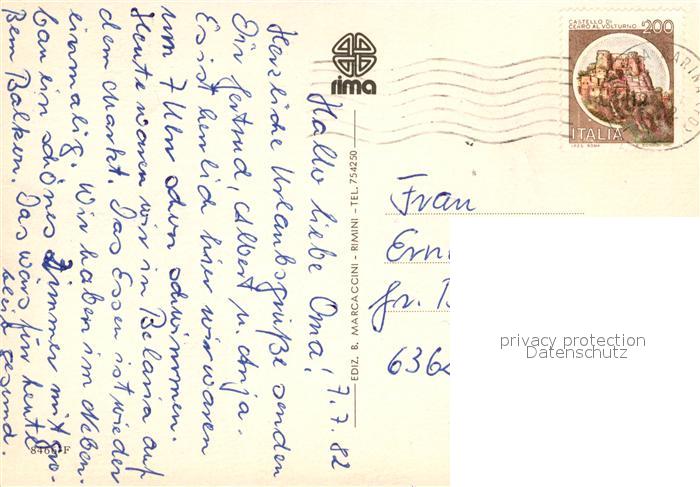 Hallo liebe Oma! 7.7.82
Herzliche Urlaubsgrüße senden
Dir Gertrud, Albert u. Anja.
Es ist herrlich hier wir waren
um 7 Uhr schon schwimmen.
Heute waren wir in Belaria auf
dem Markt. Das Essen ist wieder
einmalig. Wir haben im Neben-
bau ein schönes Zimmer mit gro-
ßem Balkon. Das wärs für heute
bleib gesund.
8466-F
rima
EDIZ. B. MARCACCINI - RIMINI - TEL. 754250
CASTELLO DI
CERRO AL VOLTURNO 200
ITALIA
I.P.Z.S. ROMA
Frau
Ern
Gr. B
636
privacy protection
Datenschutz